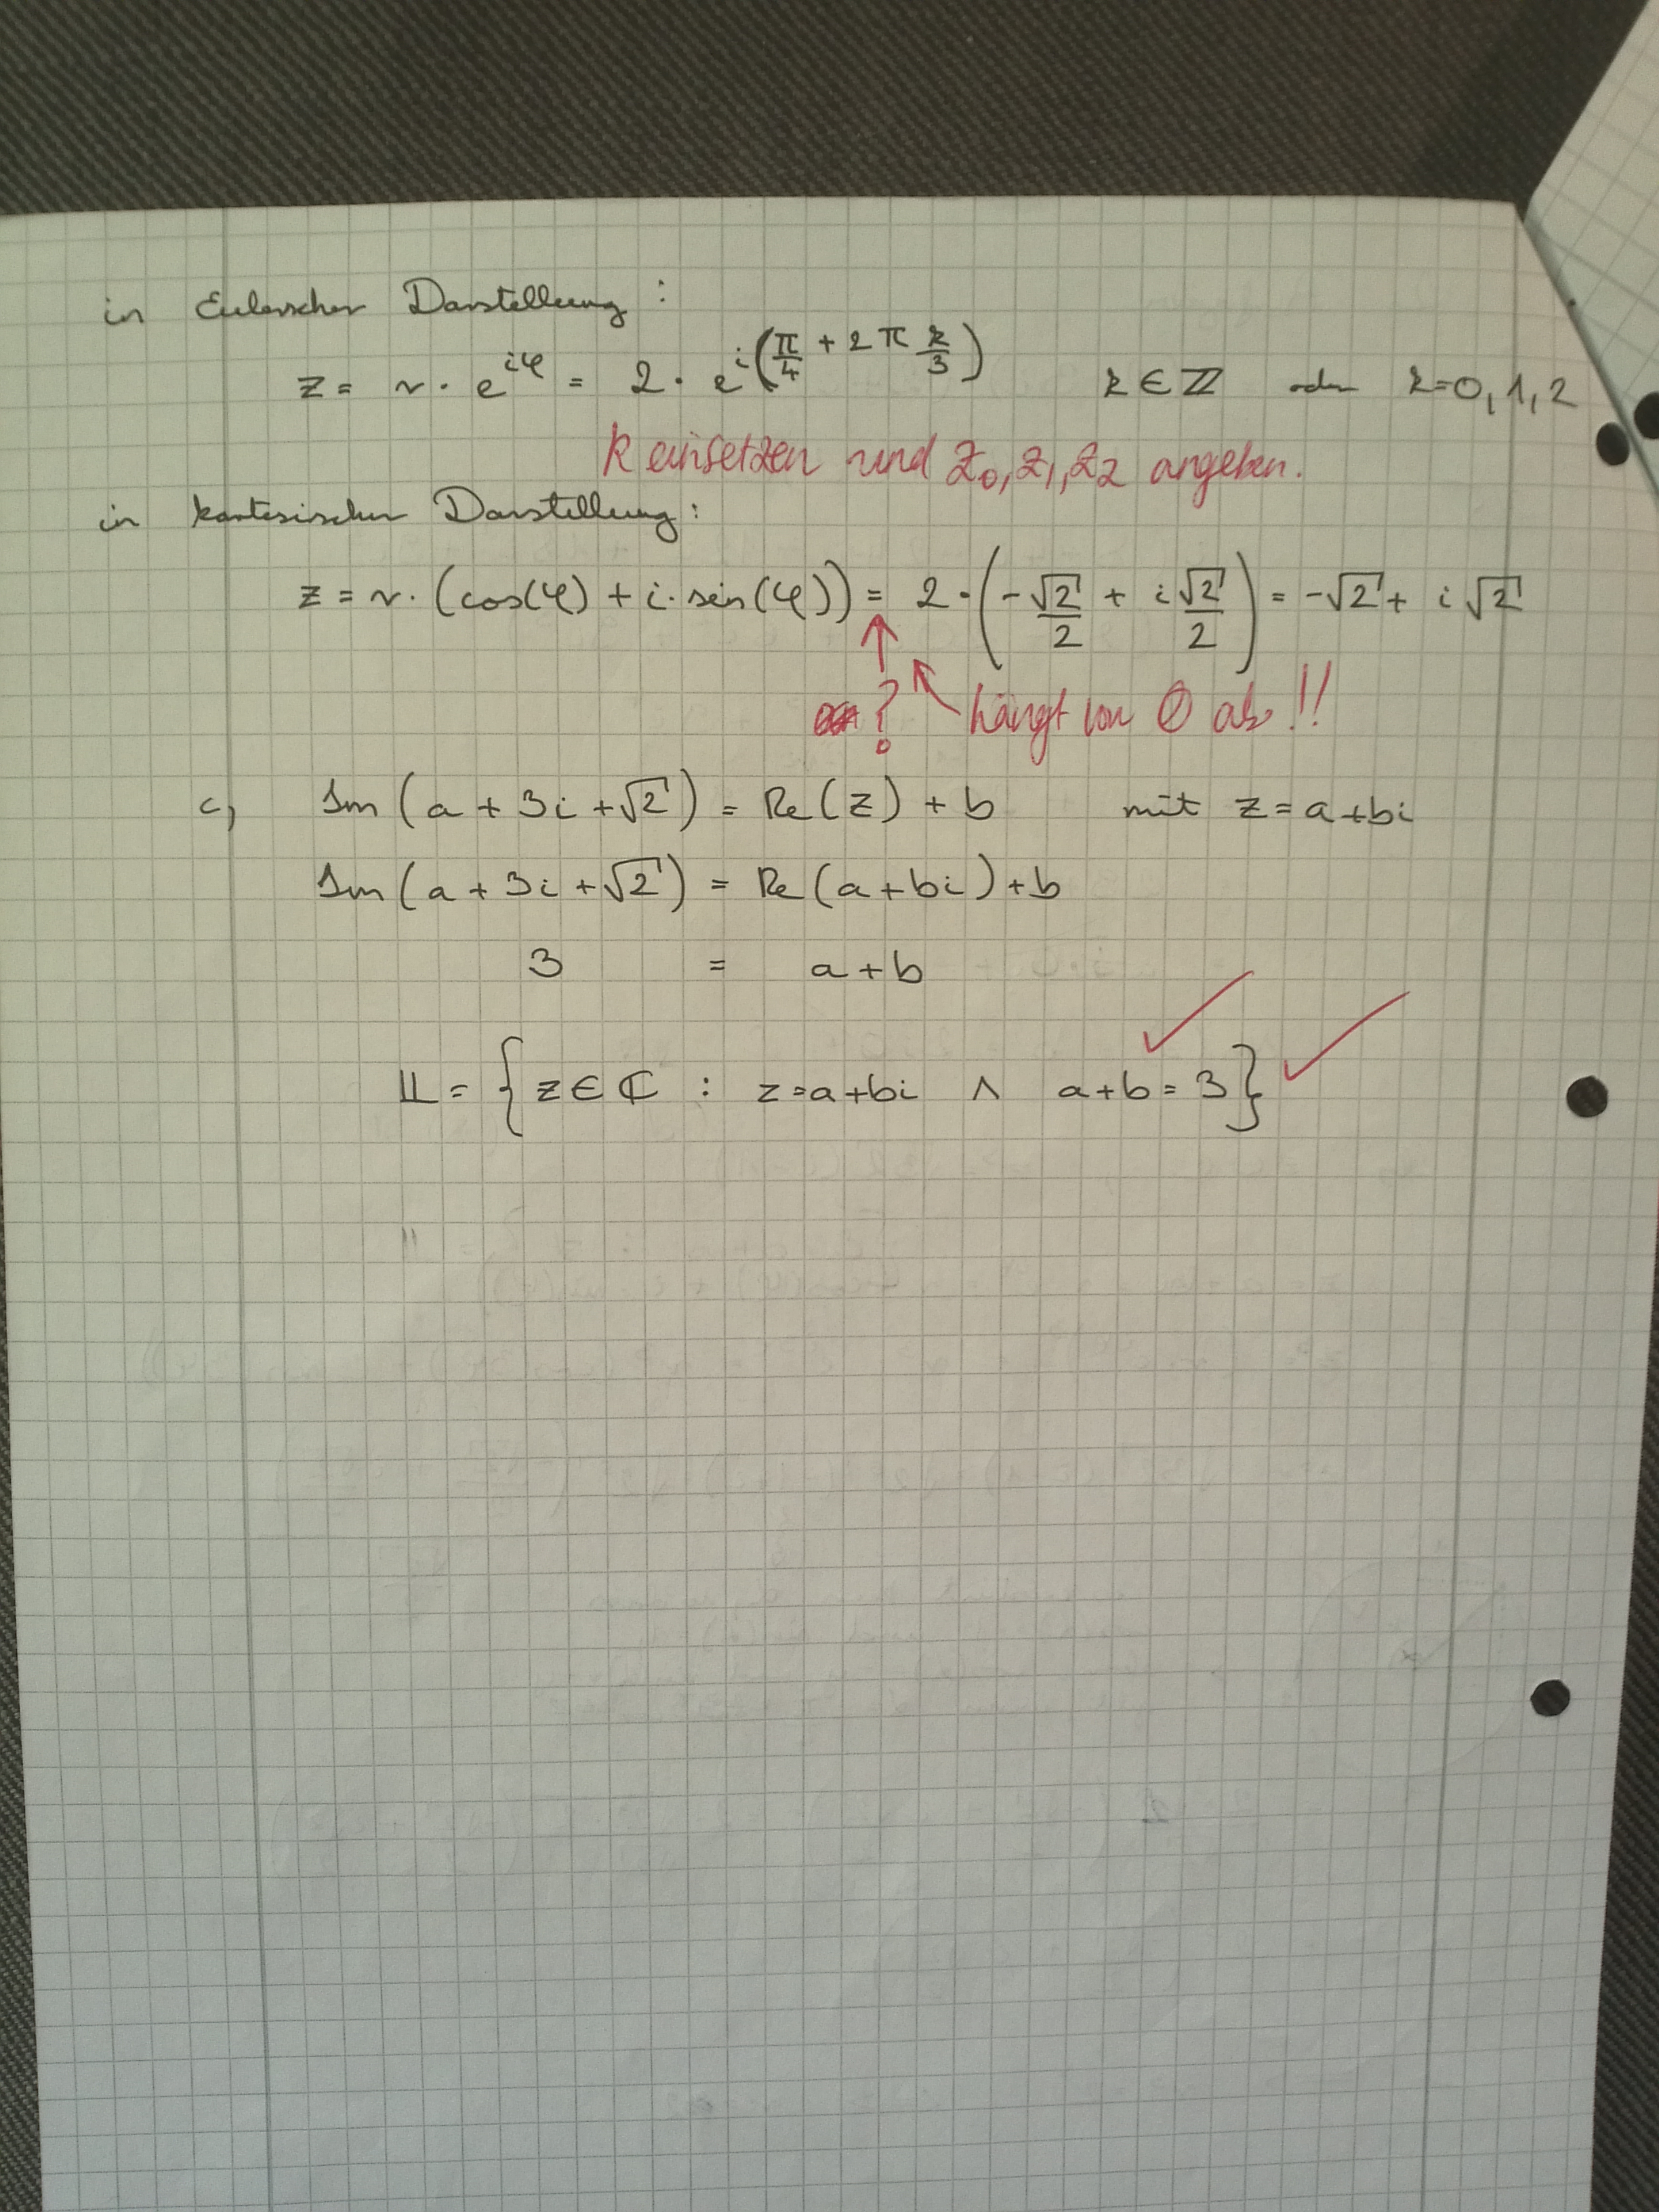 in Eulerscher Darstellung :
z = r · e^{iφ} = 2 · e^{i(π/4 + 2π k/3)} k ∈ ℤ oder k=0,1,2
k einsetzen und z₀, z₁, z₂ angeben.
in kartesischer Darstellung :
z = r · (cos(φ) + i · sin(φ)) = 2 · (-√2/2 + i √2/2) = -√2 + i √2
? hängt von φ ab !!
c) Im (a + 3i + √2) = Re(z) + b mit z = a + bi
Im (a + 3i + √2) = Re (a + bi) + b
3 = a + b
𝕃 = { z ∈ ℂ : z = a + bi ∧ a + b = 3 }